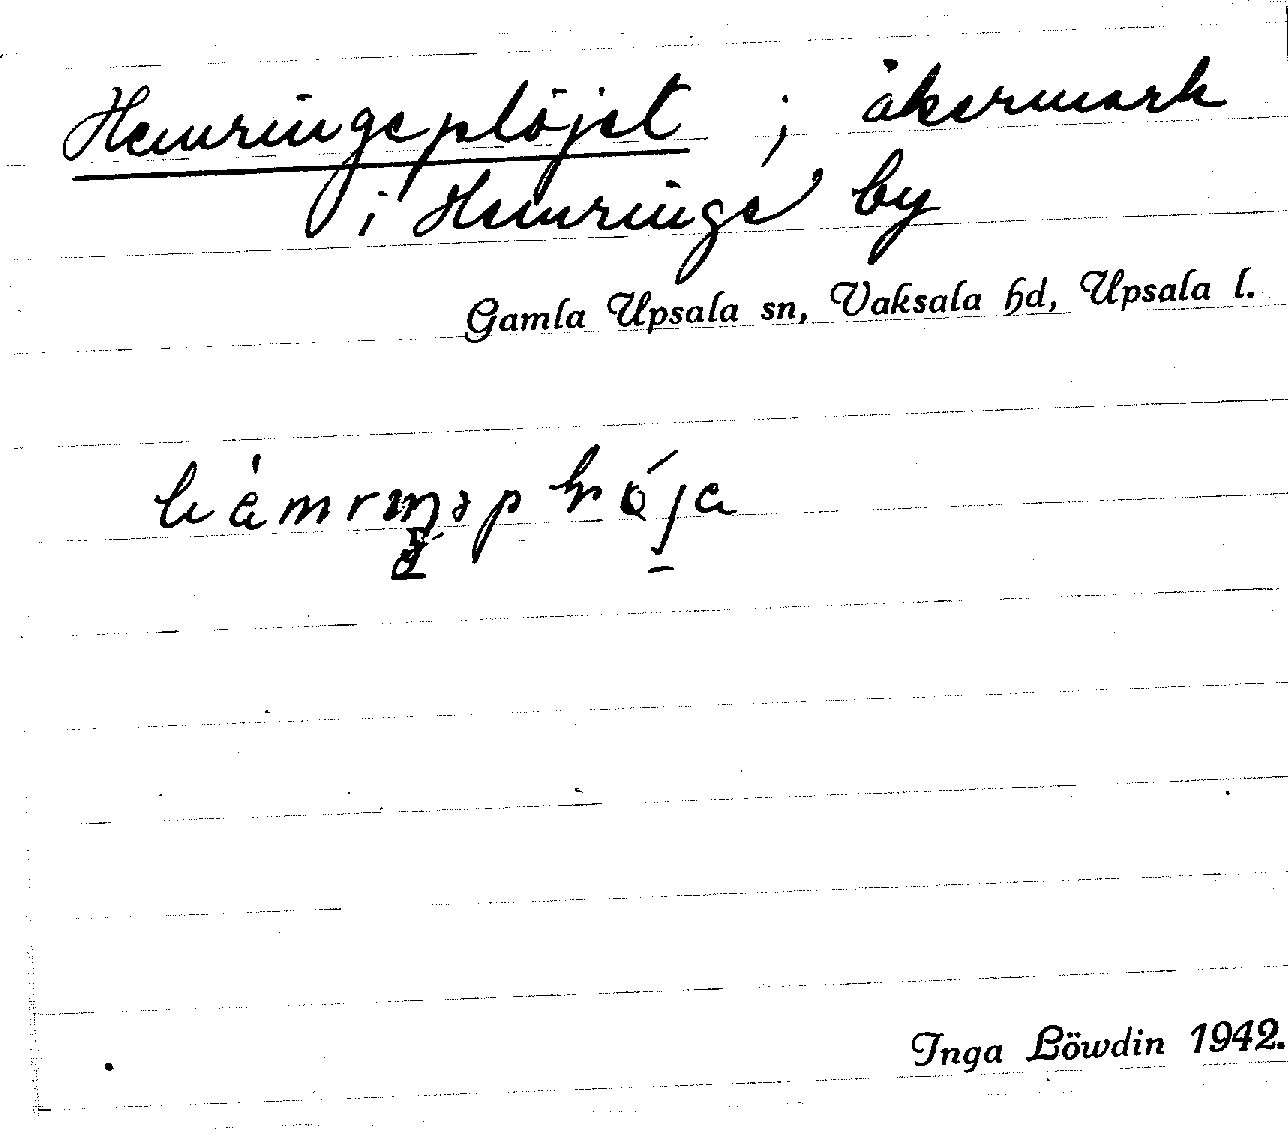 Hemringeplöjet ; åkermark
i Hemringe by
Gamla Upsala sn, Vaksala hd, Upsala l.
Inga Löwdin 1942.